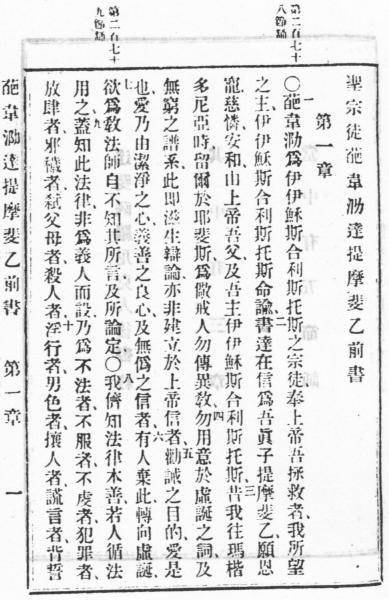 第二百七十
八節誦
第二百七十
九節誦
聖宗徒葩韋泐達提摩斐乙前書
第一章
○葩韋泐爲伊伊穌斯合利斯托斯之宗徒奉上帝吾拯救者、我所望
之主伊伊穌斯合利斯托斯命諭、書達在信爲吾眞子提摩斐乙、願恩
寵慈憐安和、由上帝吾父及吾主伊伊穌斯合利斯托斯、昔我往瑪楷
多尼亞時、留爾於耶斐斯、爲儆戒人勿傳異教、勿用意於虛誕之詞、及
無窮之譜系、此卽滋生辯論、亦非建立於上帝信者、勸誡之目的、愛是
也、愛乃由潔淨之心、義善之良心、及無僞之信者、有人棄此、轉向虛誕、
欲爲教法師、自不知其所言及所論定○我儕知法律本善、若人循法
用之、蓋知此法律非爲義人而設、乃爲不法者、不服者、不虔者、犯罪者、
放肆者、邪穢者、弒父母者、殺人者、淫行者、男色者、攘人者、謊言者、背誓
葩韋泐達提摩斐乙前書 第一章 一